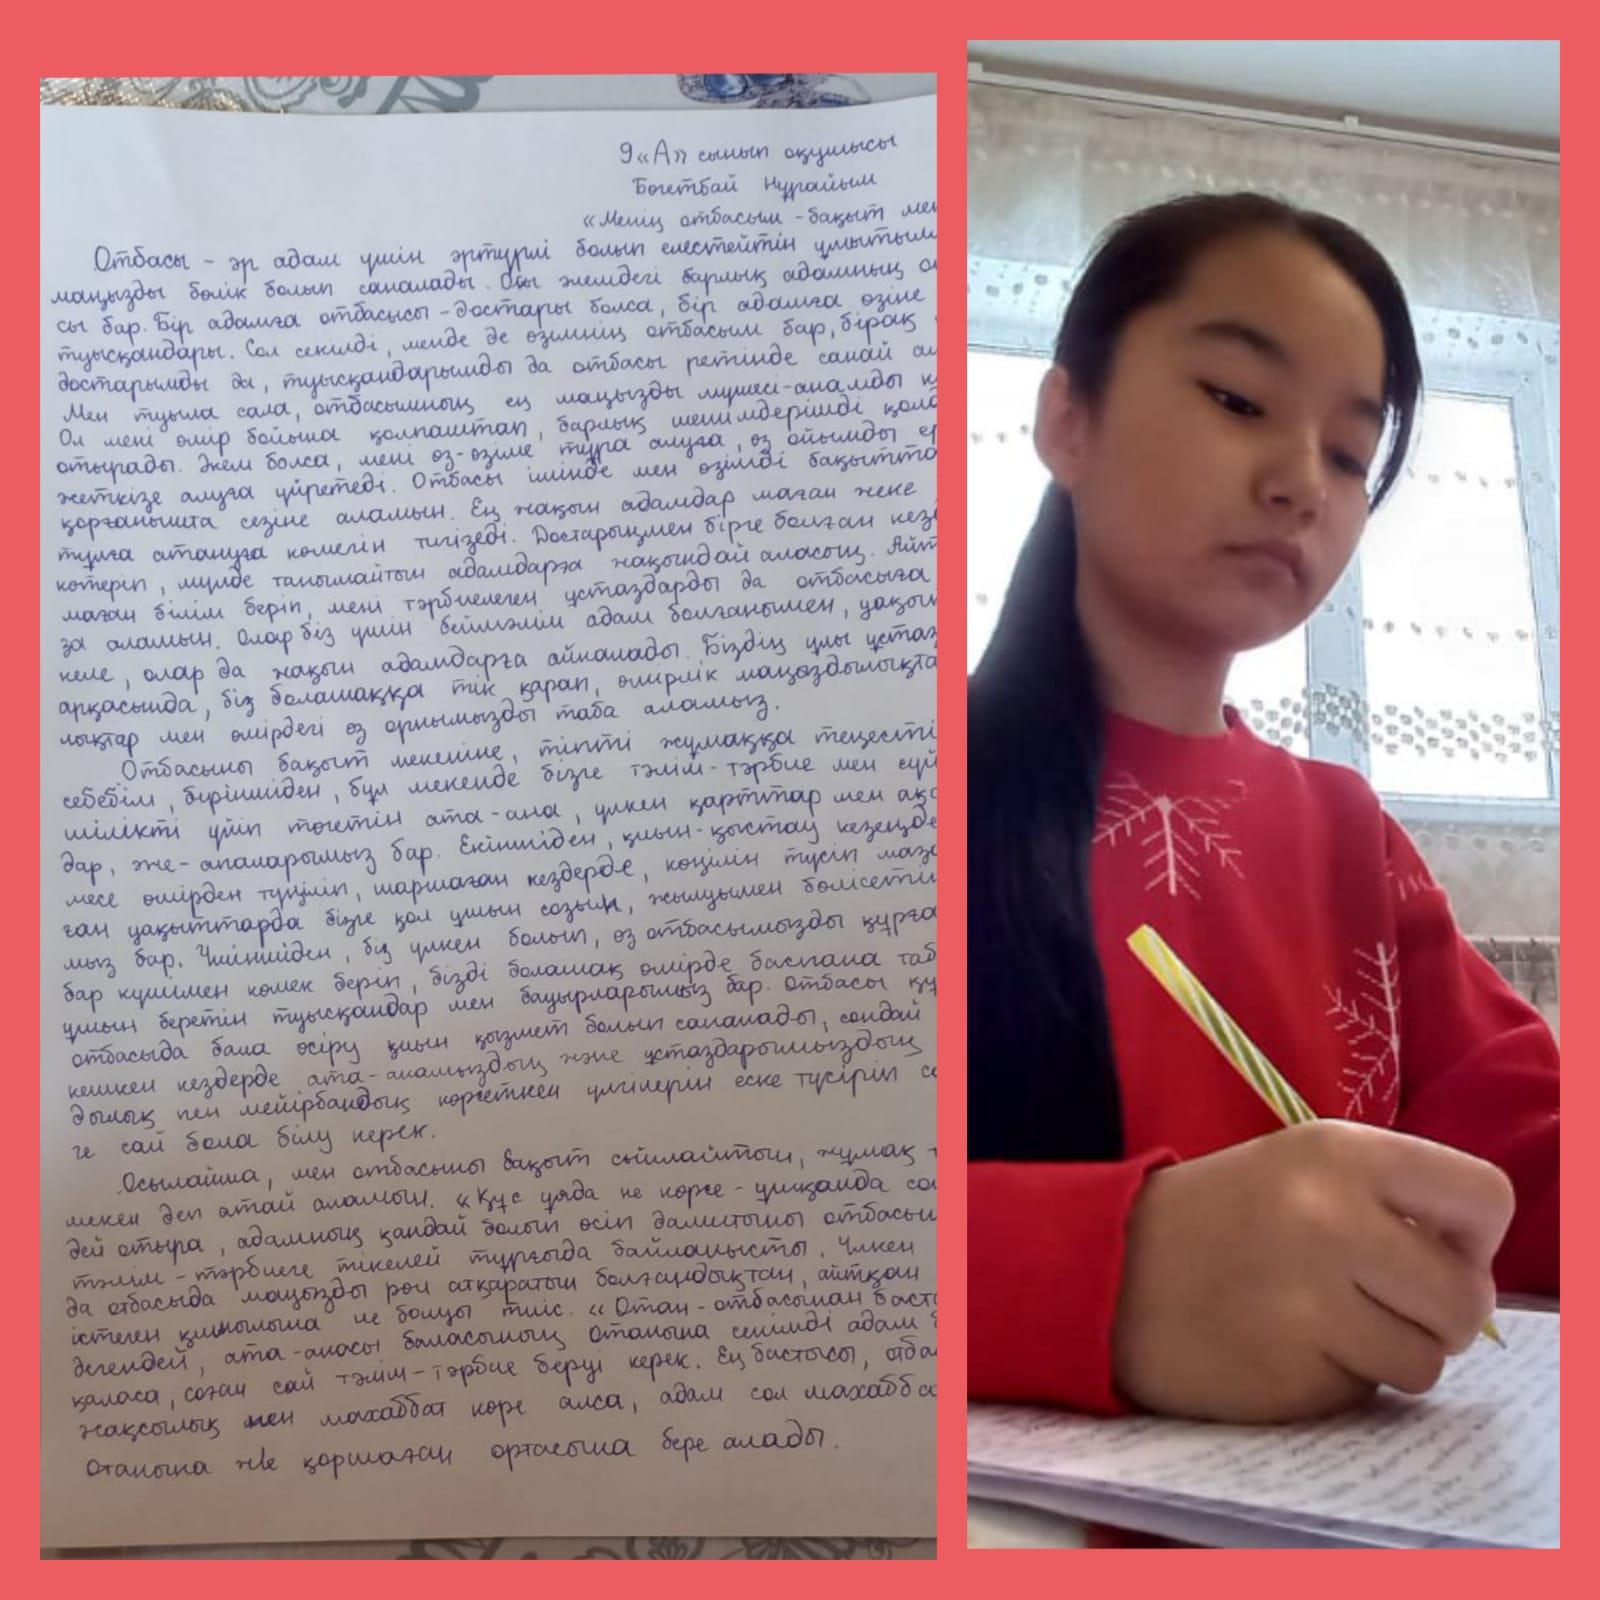 9 «А» сынып оқушысы
Бөгетбай Нұрайым
«Менің отбасым - бақыт
Отбасы - әр адам үшін әртүрлі болып елестейтін
маңызды бөлік болып саналады. Осы әлемдегі барлық адамның
сы бар. Бір адамға отбасысы - достары болса, бір адамға өзіне
туысқандары. Сол секілді, менде де өзімнің отбасым бар, бірақ
достарымды да, туысқандарымды да отбасы ретінде санай
Мен туыла сала, отбасымның ең маңызды мүшесі-анамды
Ол мені өмір бойына қолпаштап, барлық шешімдерімді
отырады. Әкем болса, мені өз-өзіме тұра алуға, өз ойымды
жеткізе алуға үйретеді. Отбасы ішінде мен өзімді
қорғанышта сезіне аламын. Ең жақын адамдар маған жеке
тұлға атануға көмегін тигізеді. Достарыңмен бірге болған
көтеріп, мүлде танымайтын адамдарға жақындай аласың.
маған білім беріп, мені тәрбиелеген ұстаздарды да отбасыға
за аламын. Олар біз үшін бейтәлім адам болғанымен,
келе, олар да жақын адамдарға айналады. Біздің ұлы
арқасында, біз болашаққа тік қарап, өмірлік
лықтар мен өмірдегі өз орнымызды таба аламыз.
Отбасыны бақыт мекеніне, тіпті жұмаққа
себебім, біріншіден, бұл мекенде бізге тәлім-тәрбие мен
шілікті үйіп төгетін ата-ана, үлкен қарттар мен
дар, әке-апаларымыз бар. Екіншіден, қиын-қыстау
месе өмірден түңіліп, шаршаған кездерде, көңілін түсіп
ған уақыттарда бізге қол ұшын созып, жылуымен
мыз бар. Үшіншіден, біз үлкен болып, өз отбасымызды
бар күшімен көмек беріп, бізді болашақ өмірде баспана
ұшын беретін туысқандар мен бауырларымыз бар. Отбасы
отбасыда бала өсіру қиын қызмет болып саналады, сондай
кешкен кездерде ата-анамыздың және ұстаздарымыздың
дылық пен мейірбандық көрсеткен үлгілерін еске түсіріп
ге сай бола білу керек.
Осылайша, мен отбасыны бақыт сыйлайтын, жұмақ
мекен деп атай аламын. «Құс ұяда не көрсе - ұшқанда
дей отыра, адамның қандай болып өсіп дамитыны
тәлім-тәрбиеге тікелей тұрғыда байланысты. Үлкен
да отбасыда маңызды рөл атқаратын болғандықтан, айтқан
істеген қылығына ие болуы тиіс. «Отан - отбасынан
дегендей, ата-анасы баласының Отанына сенімді адам
қаласа, соған сай тәлім-тәрбие беруі керек. Ең бастысы,
жақсылық пен махаббат көре алса, адам сол
Отанына және қоршаған ортасына бере алады.